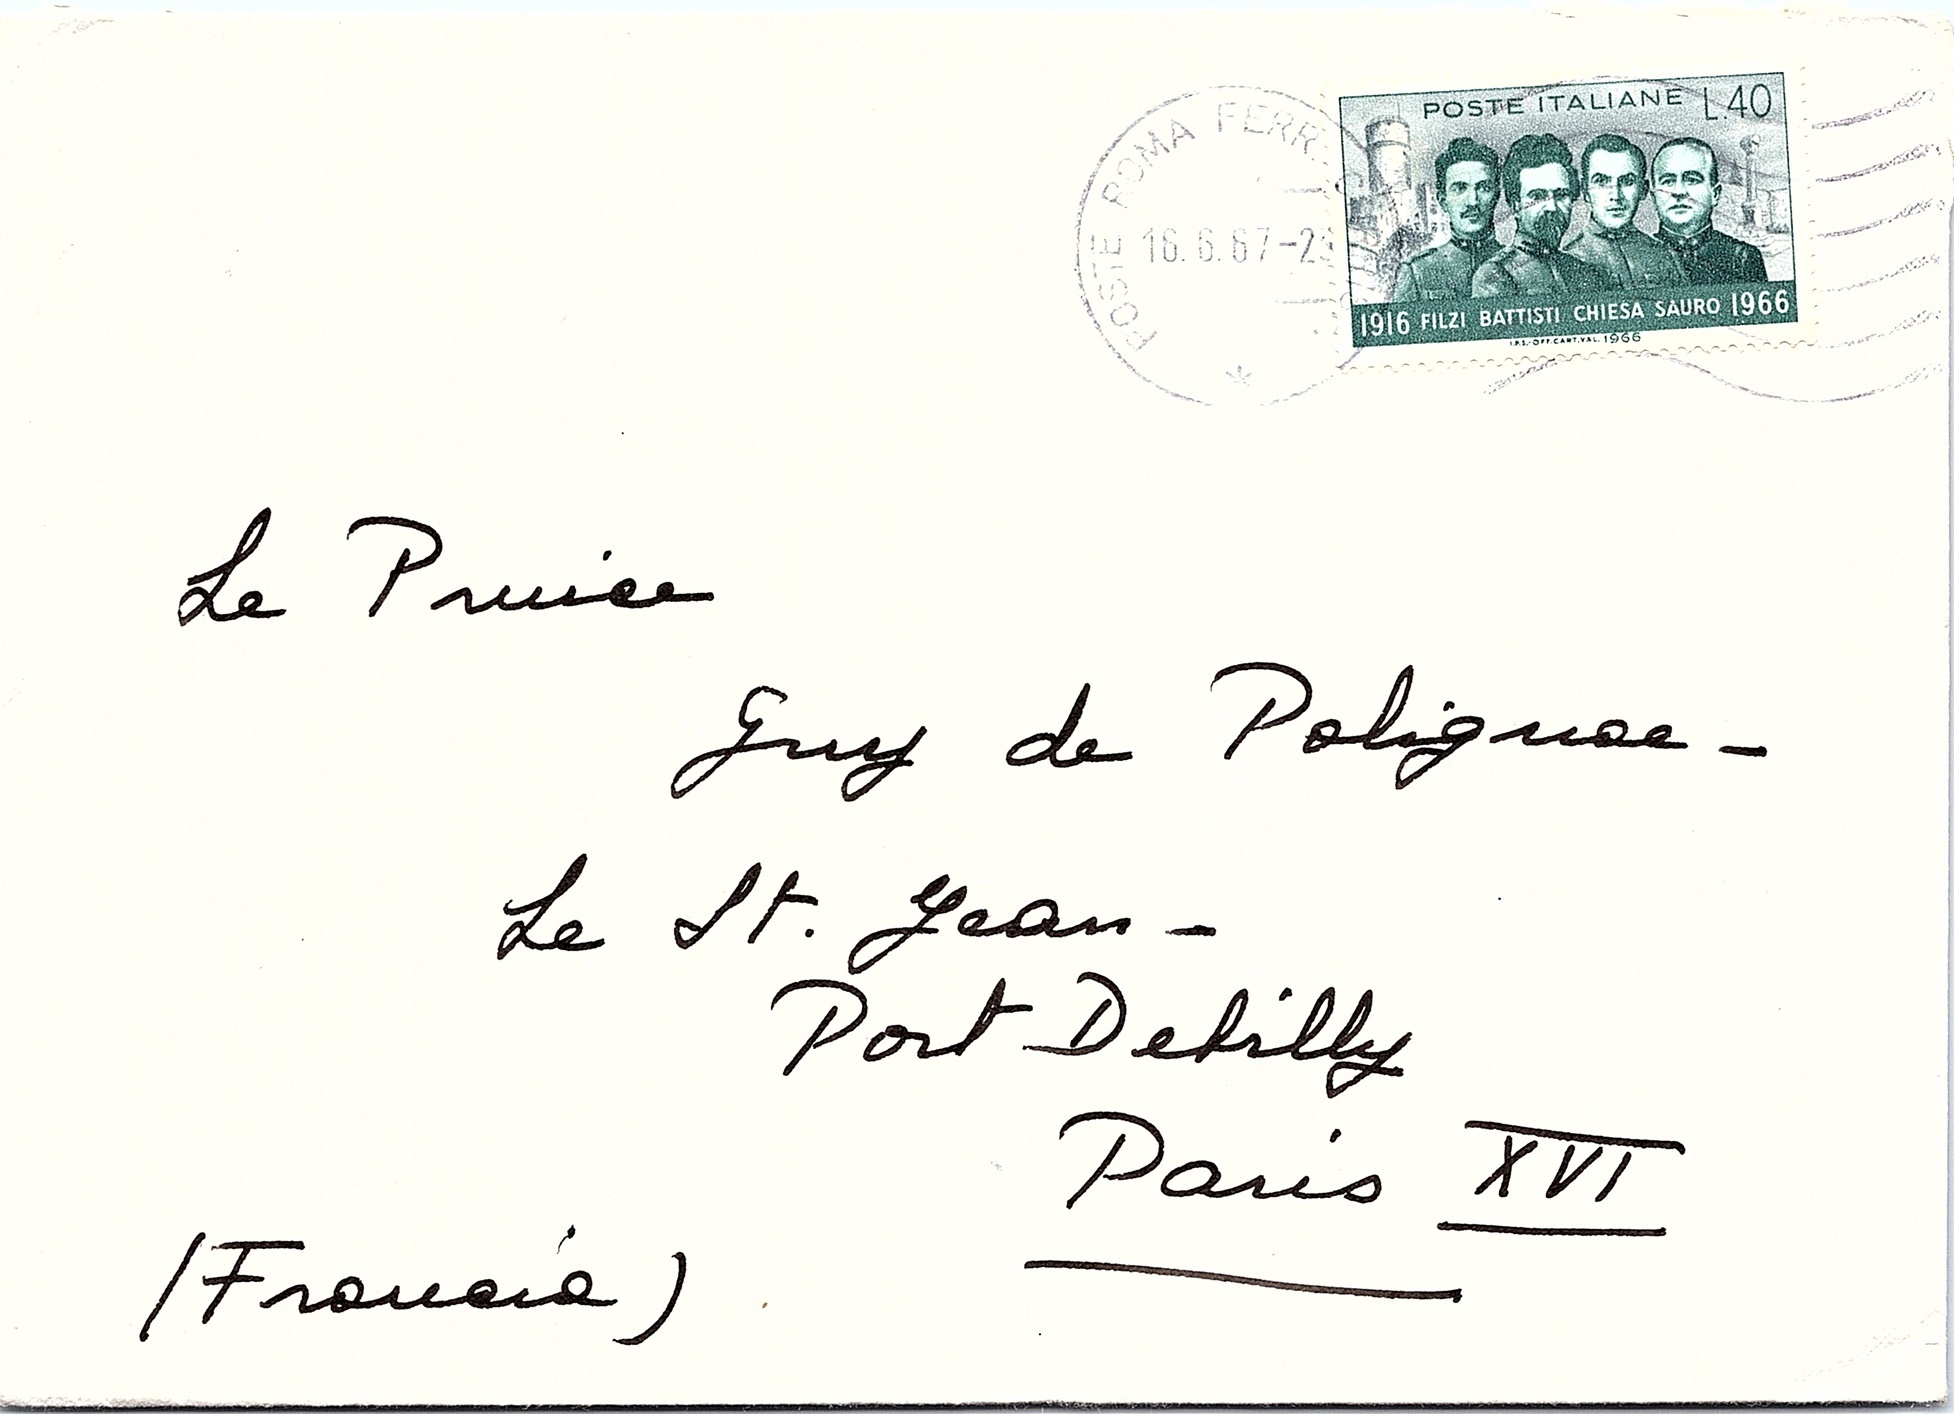 POSTE ITALIANE L.40
1916 FILZI BATTISTI CHIESA SAURO 1966
I.P.S.-OFF.CART.VAL. 1966
POSTE ROMA FERR
16.6.67-2
Le Prince
Guy de Polignac -
Le St. Jean -
Port Debilly
Paris XVI
(Francia)